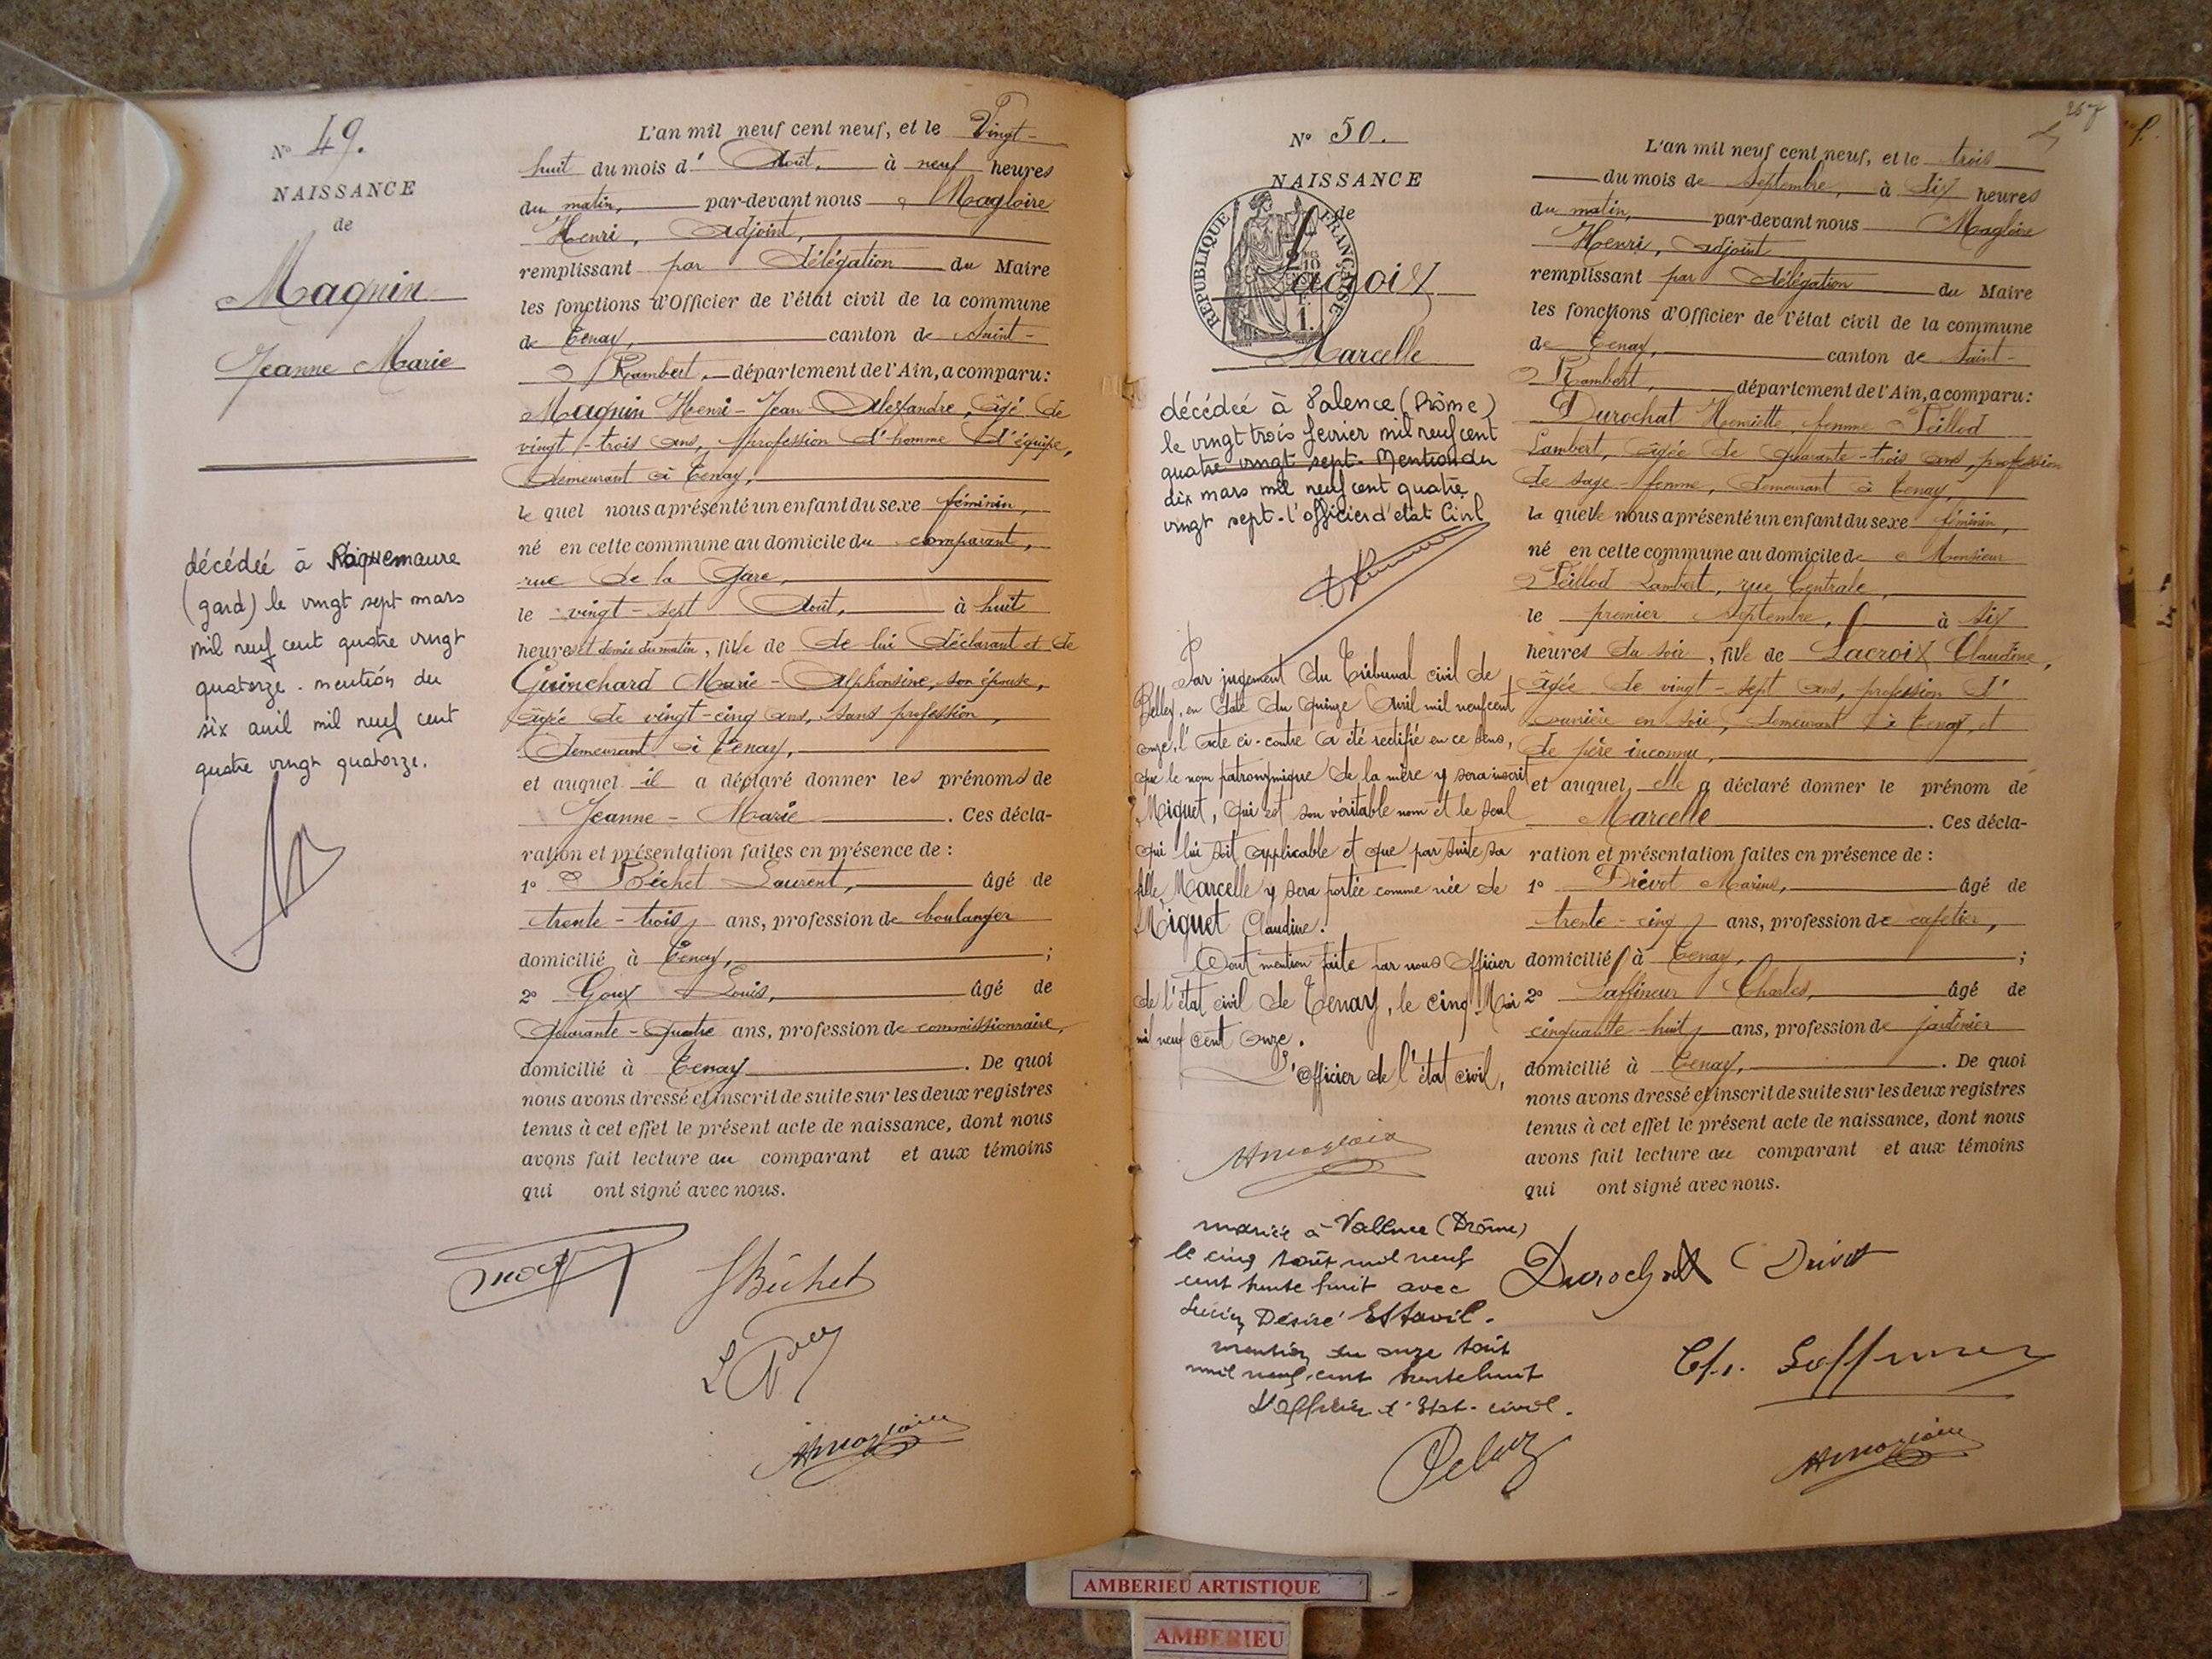 N° 49.
NAISSANCE
de
Magnin
Jeanne Marie
décédée à Roquemaure
(gard) le vingt sept mars
mil neuf cent quatre vingt
quatorze. mention du
six avril mil neuf cent
quatre vingt quatorze.
L'an mil neuf cent neuf, et le Vingt-
huit du mois d' Août, à neuf heures
du matin, par-devant nous Magloire
Henri, adjoint,
remplissant par délégation du Maire
les fonctions d'Officier de l'état civil de la commune
de Tenay, canton de Saint-
Rambert, département de l'Ain, a comparu:
Magnin Henri-Jean Alexandre, âgé de
vingt-trois ans, profession d'homme d'équipe,
demeurant à Tenay,
le quel nous a présenté un enfant du sexe féminin,
né en cette commune au domicile du comparant,
rue de la Gare,
le vingt-sept Août, à huit
heures et demie du matin, fille de de lui déclarant et de
Guinchard Marie-Alphonsine, son épouse,
âgée de vingt-cinq ans, sans profession,
demeurant à Tenay,
et auquel il a déclaré donner les prénoms de
Jeanne-Marie. Ces décla-
ration et présentation faites en présence de :
1° Béchet Laurent, âgé de
trente-trois ans, profession de boulanger
domicilié à Tenay, ;
2° Goux Louis, âgé de
quarante-quatre ans, profession de commissionnaire,
domicilié à Tenay. De quoi
nous avons dressé et inscrit de suite sur les deux registres
tenus à cet effet le présent acte de naissance, dont nous
avons fait lecture au comparant et aux témoins
qui ont signé avec nous.
Béchet
HMagloire
257
N° 50.
NAISSANCE
de
RÉPUBLIQUE FRANÇAISE
Lacroix
Marcelle
décédée à Valence (Drôme)
le vingt trois février mil neuf cent
quatre vingt sept. Mention du
dix mars mil neuf cent quatre
vingt sept. l'officier d'état Civil
Par jugement du Tribunal civil de
Belley, en date du quinze Avril mil neuf cent
onze, l'acte ci-contre a été rectifié en ce sens,
que le nom patronymique de la mère y sera inscrit
Miguet, qui est son véritable nom et le seul
qui lui soit applicable et que par suite sa
fille Marcelle y sera portée comme née de
Miguet Claudine.
Dont mention faite par nous Officier
de l'état civil de Tenay, le cinq Mai
mil neuf cent onze.
L'Officier de l'état civil,
HMagloire
mariée à Valence (Drôme)
le cinq Août mil neuf
cent trente huit avec
Lucien Désiré Estavil.
mention du onze Août
mil neuf cent trente huit
L'officier d'Etat-civil.
L'an mil neuf cent neuf, et le trois
du mois de Septembre, à dix heures
du matin, par-devant nous Magloire
Henri, adjoint
remplissant par délégation du Maire
les fonctions d'Officier de l'état civil de la commune
de Tenay, canton de Saint-
Rambert, département de l'Ain, a comparu:
Durochat Henriette, femme Teillod
Lambert, âgée de quarante-trois ans, profession
de sage-femme, demeurant à Tenay,
la quelle nous a présenté un enfant du sexe féminin,
né en cette commune au domicile de Monsieur
Teillod Lambert, rue Centrale,
le premier Septembre, à six
heures du soir, fille de Lacroix Claudine,
âgée de vingt-sept ans, profession d'
ouvrière en soie, demeurant à Tenay, et
de père inconnu,
et auquel elle a déclaré donner le prénom de
Marcelle. Ces décla-
ration et présentation faites en présence de :
1° Drevot Marius, âgé de
trente-cinq ans, profession de cafetier,
domicilié à Tenay, ;
2° Laffineur Charles, âgé de
cinquante-huit ans, profession de jardinier
domicilié à Tenay, . De quoi
nous avons dressé et inscrit de suite sur les deux registres
tenus à cet effet le présent acte de naissance, dont nous
avons fait lecture au comparant et aux témoins
qui ont signé avec nous.
Durochat Drivot
Ch. Laffineur
HMagloire
AMBERIEU ARTISTIQUE
AMBERIEU